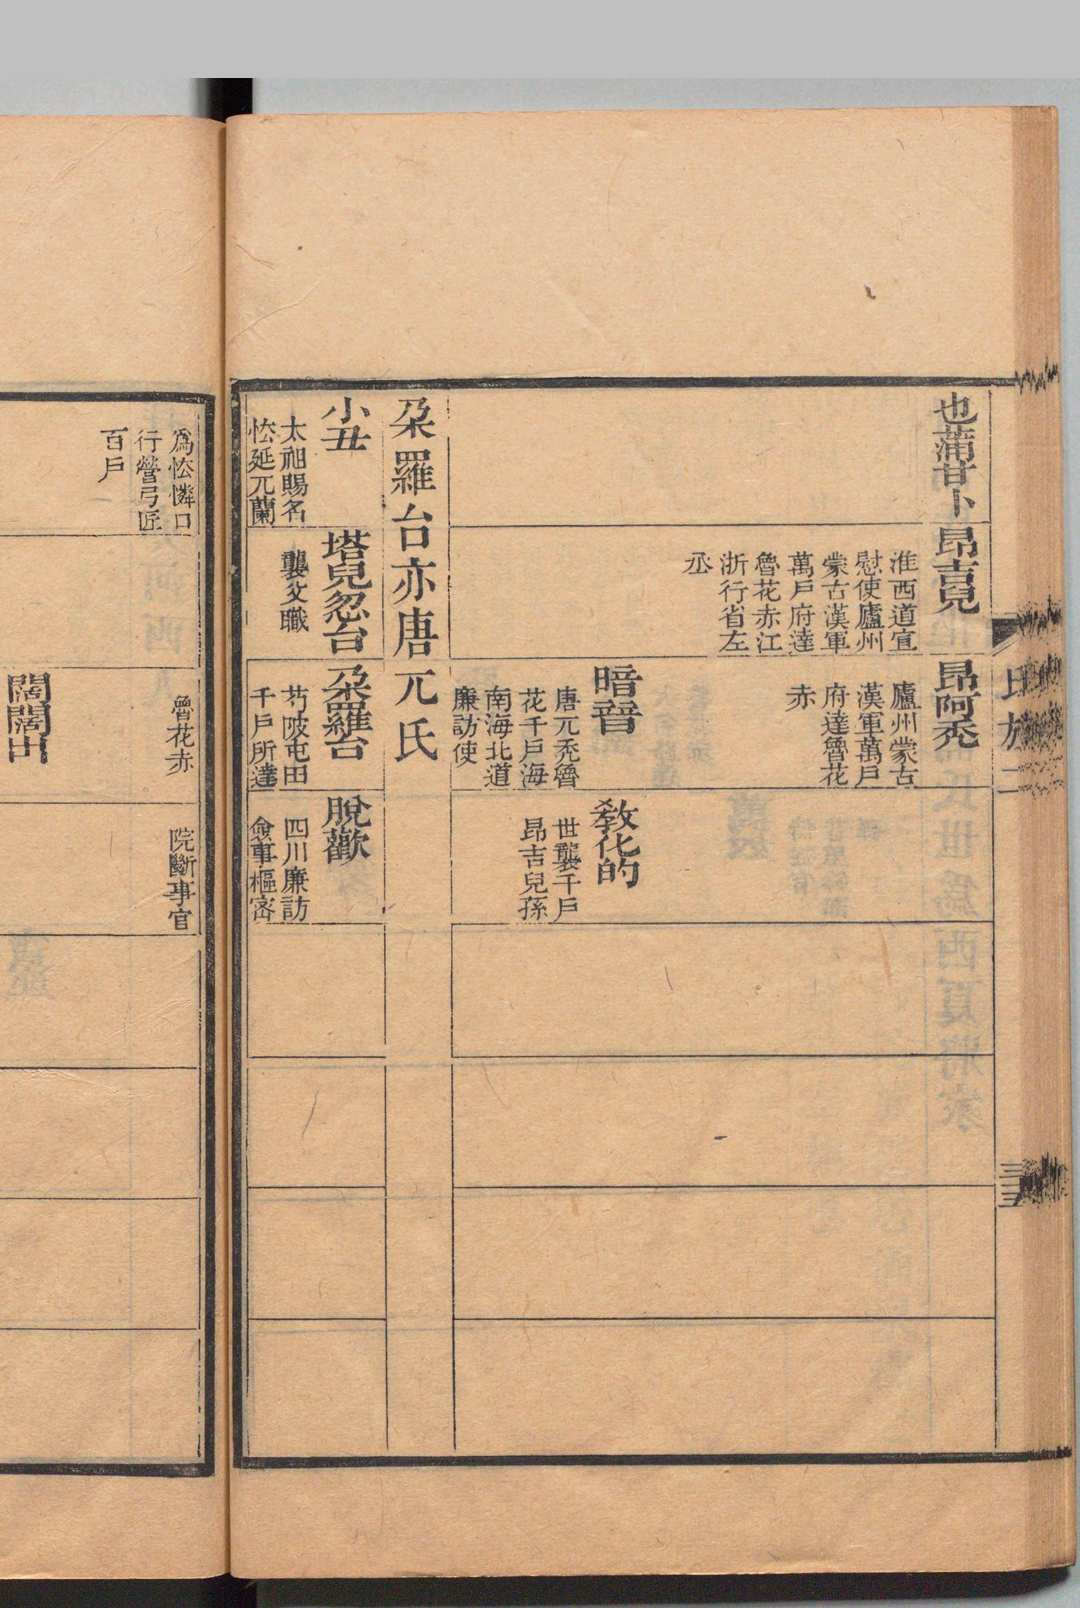 氏族二
三五
也蒲甘卜
昂吉兒
淮西道宣
慰使廬州
蒙古漢軍
萬戶府達
魯花赤江
浙行省左
丞
昂阿禿
廬州蒙古
漢軍萬戶
府達魯花
赤
暗普
唐兀禿魯
花千戶海
南海北道
廉訪使
教化的
世襲千戶
昂吉兒孫
朶羅台亦唐兀氏
小丑
太祖賜名
怯延兀蘭
塔兒忽台
襲父職
朶羅台
芍陂屯田
千戶所達
脫歡
四川廉訪
僉事樞密
爲怯憐口
行營弓匠
百戶
魯花赤
院斷事官
闊闊出